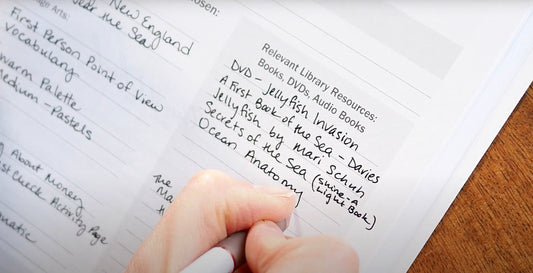 New England
under the Sea
ign Arts:
First Person Point of View
Vocabulary
warm Palette
medium - Pastels
g About Money
st Check Activity Page
matic
osen:
the
Ma
Relevant Library Resources:
Books, DVDs, Audio Books
DVD - Jellyfish Invasion
A First Book of the Sea - Davies
Jellyfish by Mari Schuh
Secrets of the Sea (Shine-A
Light Book)
Ocean Anatomy